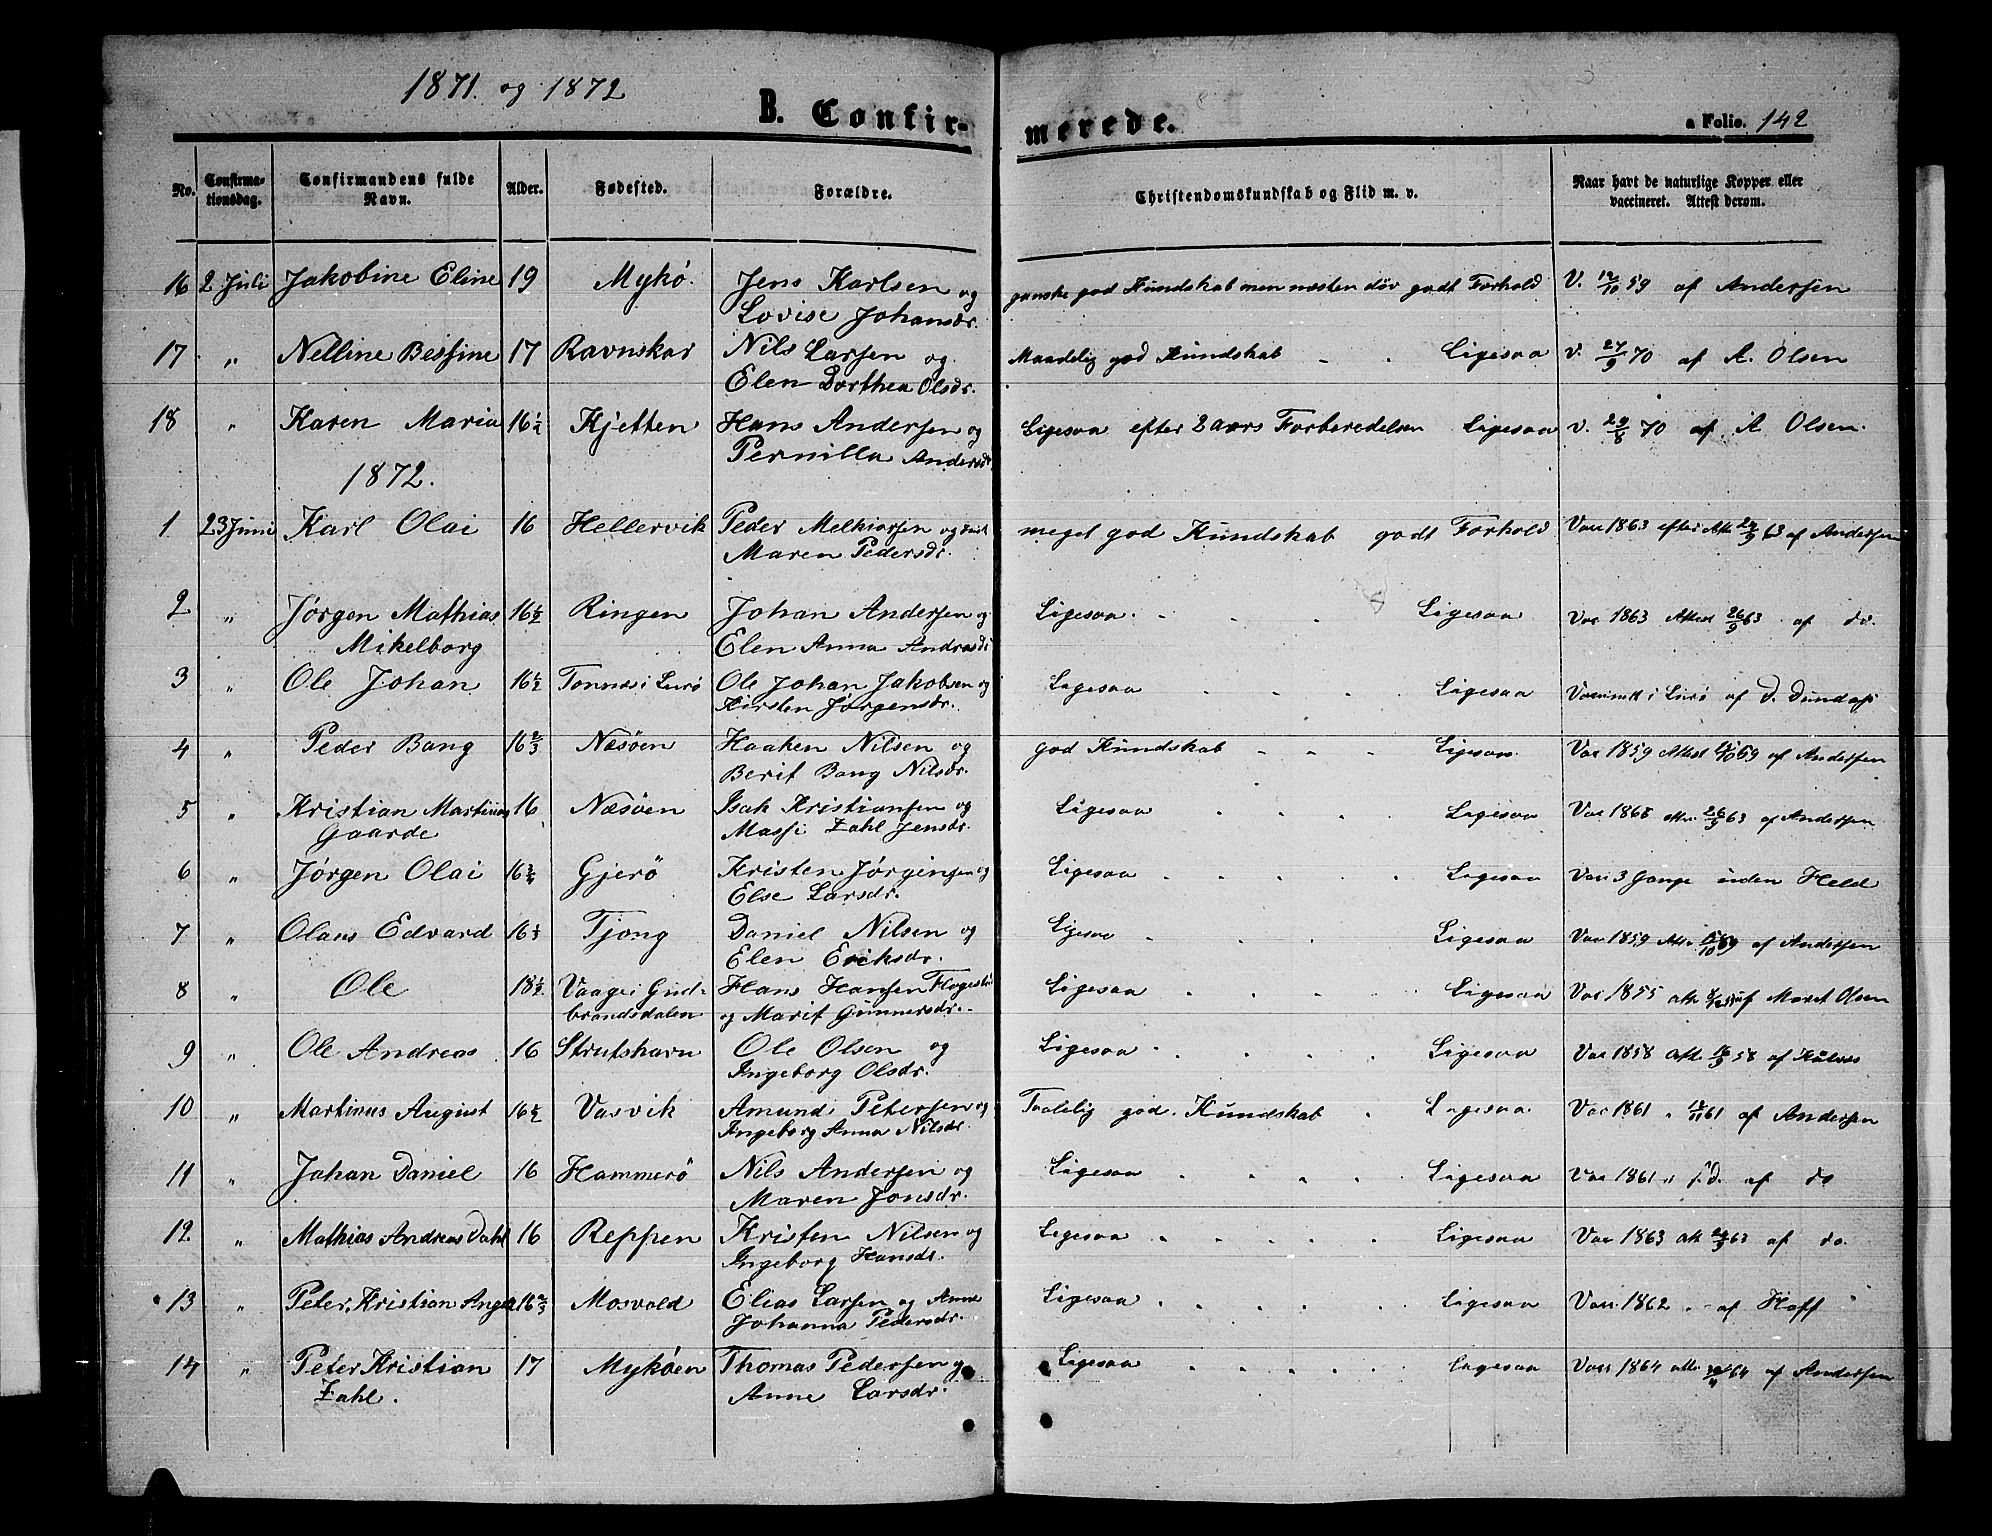 1871. og 1872
B. Confirmerede.
a Folio. 142
No. Confirmationsdag. Confirmandens fulde Navn. Alder. Fødested. Forældre. Christendomskundskab og Flid m. v. Naar havt de naturlige Kopper eller vaccineret. Attest derom.
16 2 Juli Jakobine Eline 19 Mykø. Jens Karlsen og ganske god Kundskab men næsten døv godt Forhold V. 12/10 59 af Andersen
Lovise Johansdr.
17 " Nelline Bessine 17 Ravnskar Nils Larsen og Maadelig god Kundskab Ligesaa V. 27/9 70 af A. Olsen
Elen Dorthea Olsdr.
18 " Karen Maria 16½ Kjetten Hans Andersen og Ligesaa efter 2 aars Forberedelsen Ligesaa V. 29/8 70 af A Olsen.
Pernilla Andersdr
1872.
1 23 Juni Karl Olai 16 Hellervik Peder Melhiorsen og meget god Kundskab godt Forhold Vac 1863 efter Att 24/9 63 af Andersen
Maren Pedersdr.
2 " Jørgen Mathias 16½ Ringen Johan Andersen og Ligesaa Ligesaa Vac 1863 Attest 26/9 63 af do.
Mikelborg Elen Anna Andrasdr
3 " Ole Johan 16½ Tonnes i Lurø Ole Johan Jakobsen og Ligesaa Ligesaa Vaccinett i Lurø af D.
Kirsten Jørgensdr.
4 " Peder Bang 16⅔ Næsøen Haaken Nilsen og god Kundskab Ligesaa Vac 1859 Attest 59 af Andersen
Berit Bang Nilsdr.
5 " Kristian Martinus 16 Næsøen Isak Kristiansen og Ligesaa Ligesaa Vac 1863 att. 26/9 63 af Andersen
Gaarde Massi Zahl Jensdr.
6 " Jørgen Olai 16¾ Gjerø Kristen Jørginsen og Ligesaa Ligesaa Vac 3 Gange uden Held
Else Larsdr.
7 " Olaus Edvard 16½ Tjong Daniel Nilsen og Ligesaa Ligesaa Vac 1859 Att. af Andersen
Elen Eriksdr.
8 " Ole 18½ Vaage i Gud- Hans Hansen Ligesaa Ligesaa Vac 1855 att af Marit Olsen
brandsdalen og Marit Gunnersdr.
9 " Ole Andreas 16 Strutshavn Ole Olsen og Ligesaa Ligesaa Vac 1858 Att. 58 af
Ingeborg Olsdr.
10 " Martinus August 16½ Vasvik Amund Petersen og Taalelig god Kundskab Ligesaa Vac 1861 " 61 af Andersen
Ingeborg Anna Nilsdr.
11 " Johan Daniel 16 Hammerø Nils Andersen og Ligesaa Ligesaa Vac 1861 " s. D. af do
Maren Jonsdr.
12. " Mathias Andreas Dahl 16 Reppen Kristen Nilsen og Ligesaa Ligesaa Vac 1863 att 63 af do.
Ingeborg Hansdr.
13 " Peter Kristian Angel 16⅔ Mosvold Elias Larsen og Anne Ligesaa Ligesaa Vac. 1862 af Hoff
Johanna Pedersdr.
14 " Peter Kristian 17 Mykøen Thomas Pedersen og Ligesaa Ligesaa Vac 1864 att. 64 af Andersen
Zahl. Anne Larsdr.